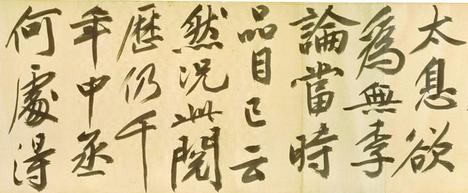 太息欲
爲無李
論當時
品目已云
然況此閱
歷仍千
年中丞
何處得